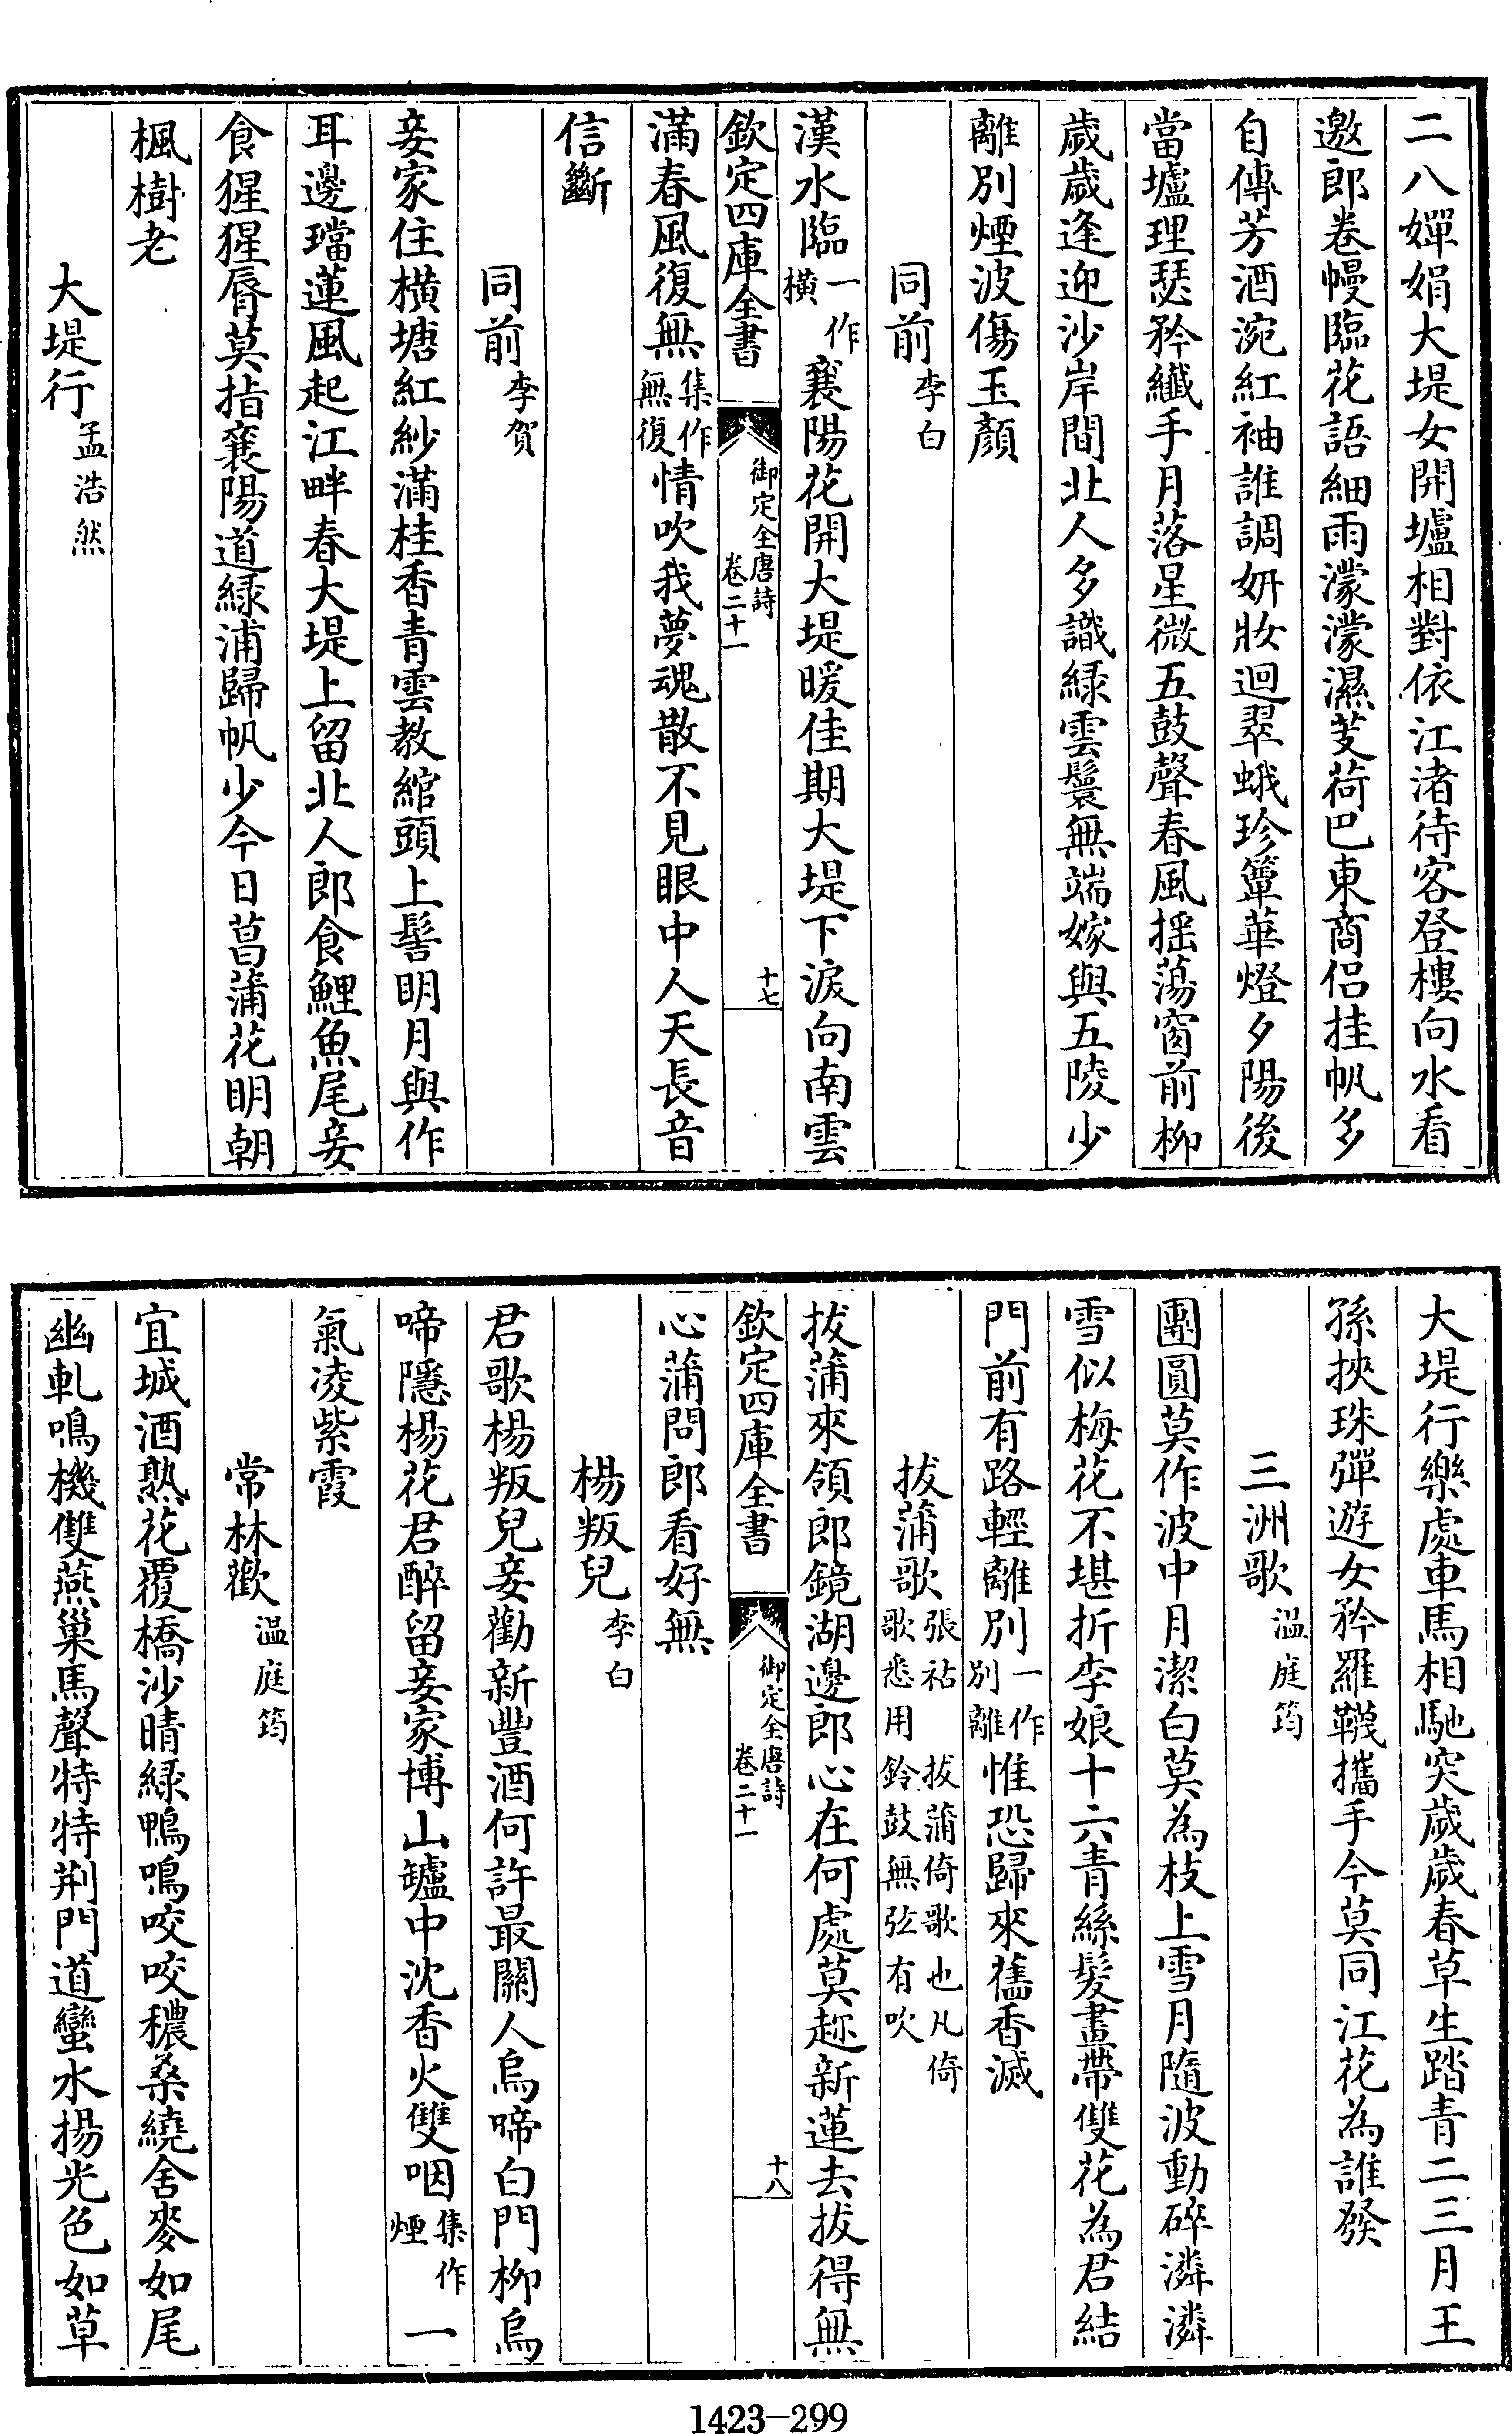 二八嬋娟大堤女開壚相對依江渚待客登樓向水看
邀郎卷幔臨花語細雨濛濛濕芰荷巴東商侣挂帆多
自傳芳酒涴紅袖誰調妍妝迴翠蛾珍簟華燈夕陽後
當壚理瑟矜纎手月落星微五鼓聲春風摇蕩窗前栁
歲歲逢迎沙岸間北人多識綠雲鬟無端嫁與五陵少
離别煙波傷玉顔
同前李白
漢水臨一作橫襄陽花開大堤暖佳期大堤下淚向南雲
欽定四庫全書
御定全唐詩
卷二十一
十七
滿春風復無集作無復情吹我夢魂散不見眼中人天長音
信斷
同前李賀
妾家住橫塘紅紗滿桂香青雲教綰頭上髻明月與作
耳邊璫蓮風起江畔春大堤上留北人郎食鯉魚尾妾
食猩猩脣莫指襄陽道緑浦歸帆少今日菖蒲花明朝
楓樹老
大堤行孟浩然
大堤行樂處車馬相馳突歲歲春草生踏青二三月王
孫挾珠彈遊女矜羅韈攜手今莫同江花為誰發
三洲歌温庭筠
團圓莫作波中月潔白莫為枝上雪月隨波動碎潾潾
雪似梅花不堪折李娘十六青絲髮畫帶雙花為君結
門前有路輕離别一作别離惟恐歸來舊香滅
拔蒲歌張祜 拔蒲倚歌也凡倚歌悉用鈴鼓無弦有吹
拔蒲來領郎鏡湖邊郎心在何處莫趂新蓮去拔得無
欽定四庫全書
御定全唐詩
卷二十一
十八
心蒲問郎看好無
楊叛兒李白
君歌楊叛兒妾勸新豐酒何許最關人烏啼白門栁烏
啼隱楊花君醉留妾家博山鑪中沈香火雙咽集作煙一
氣凌紫霞
常林歡温庭筠
宜城酒熟花覆橋沙晴緑鴨鳴咬咬穠桑繞舍麥如尾
幽軋鳴機雙燕巢馬聲特特荆門道蠻水揚光色如草
1423-299